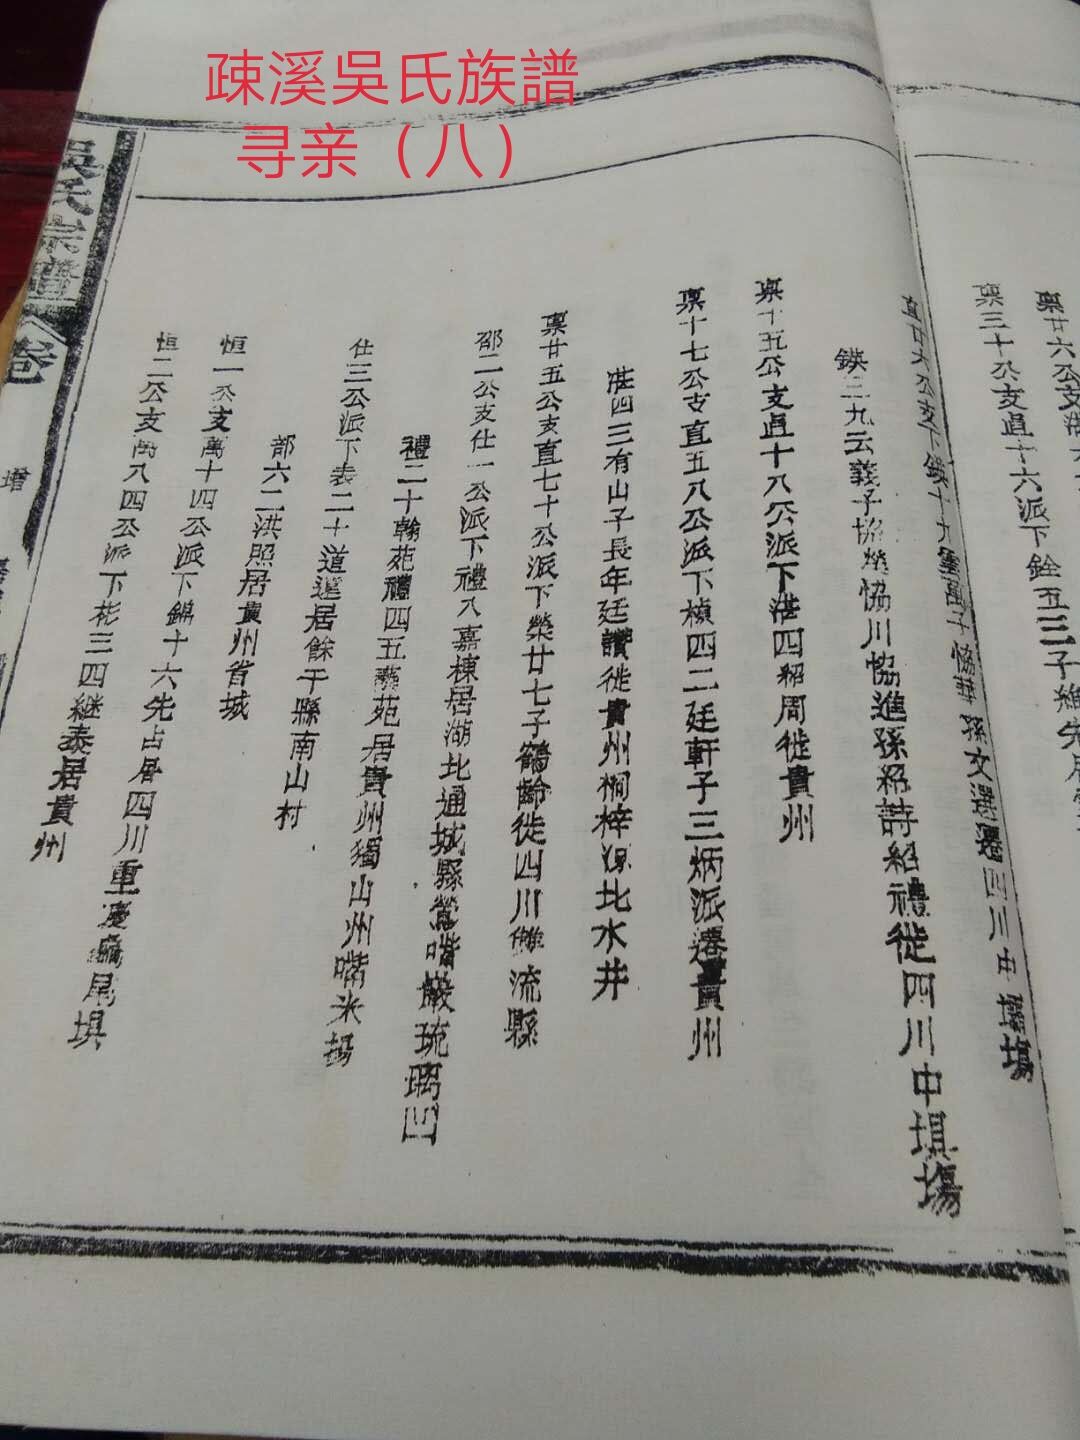 疎溪吳氏族譜
寻亲（八）
稟廿六公支
稟三十公支直十六派下銓五三子維先居
公支下鍈十九 子協華孫文選遷四川中壩塲
鍈三九云義子協榮協川協進孫紹詩紹禮徙四川中垻塲
稟十五公支直十八公派下洪四紹周徙貴州
稟十七公支直五八公派下楨四二廷軒子三炳派遷貴州
洪四三有山子長年廷讚徙貴州桐梓源北水井
稟廿五公支直七十公派下榮廿七子鶴齡徙四川雙流縣
邵二公支仕一公派下禮八嘉棟居湖北通城縣鶯嘴巖琉璃
禮二十翰苑禮四五藝苑居貴州獨山州嘴米塲
仕三公派下表二十道暹居餘干縣南山村
部六二洪照居貴州省城
恒一公支萬十四公派下錦十六先占居四川重慶 尾垻
恒二公支萬八四公派下彬三四継泰居貴州
吳氏宗譜
卷
增